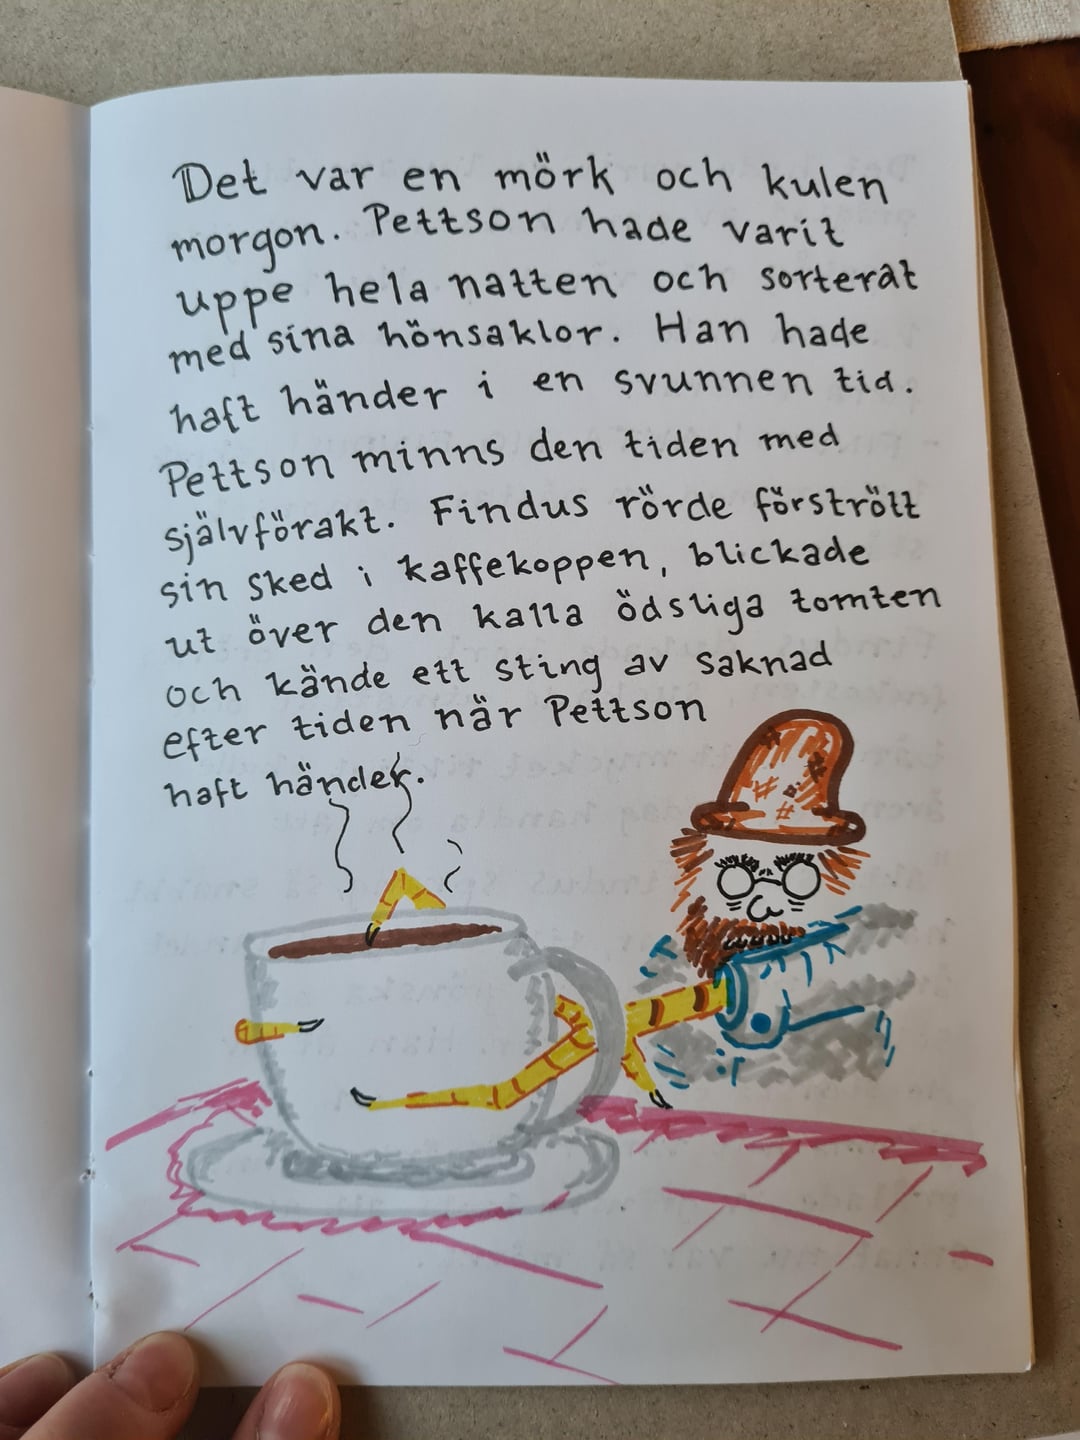 Det var en mörk och kulen
morgon. Pettson hade varit
uppe hela natten och sorterat
med sina hönsaklor. Han hade
haft händer i en svunnen tid.
Pettson minns den tiden med
självförakt. Findus rörde förstrött
sin sked i kaffekoppen, blickade
ut över den kalla ödsliga tomten
och kände ett sting av saknad
efter tiden när Pettson
haft händer.